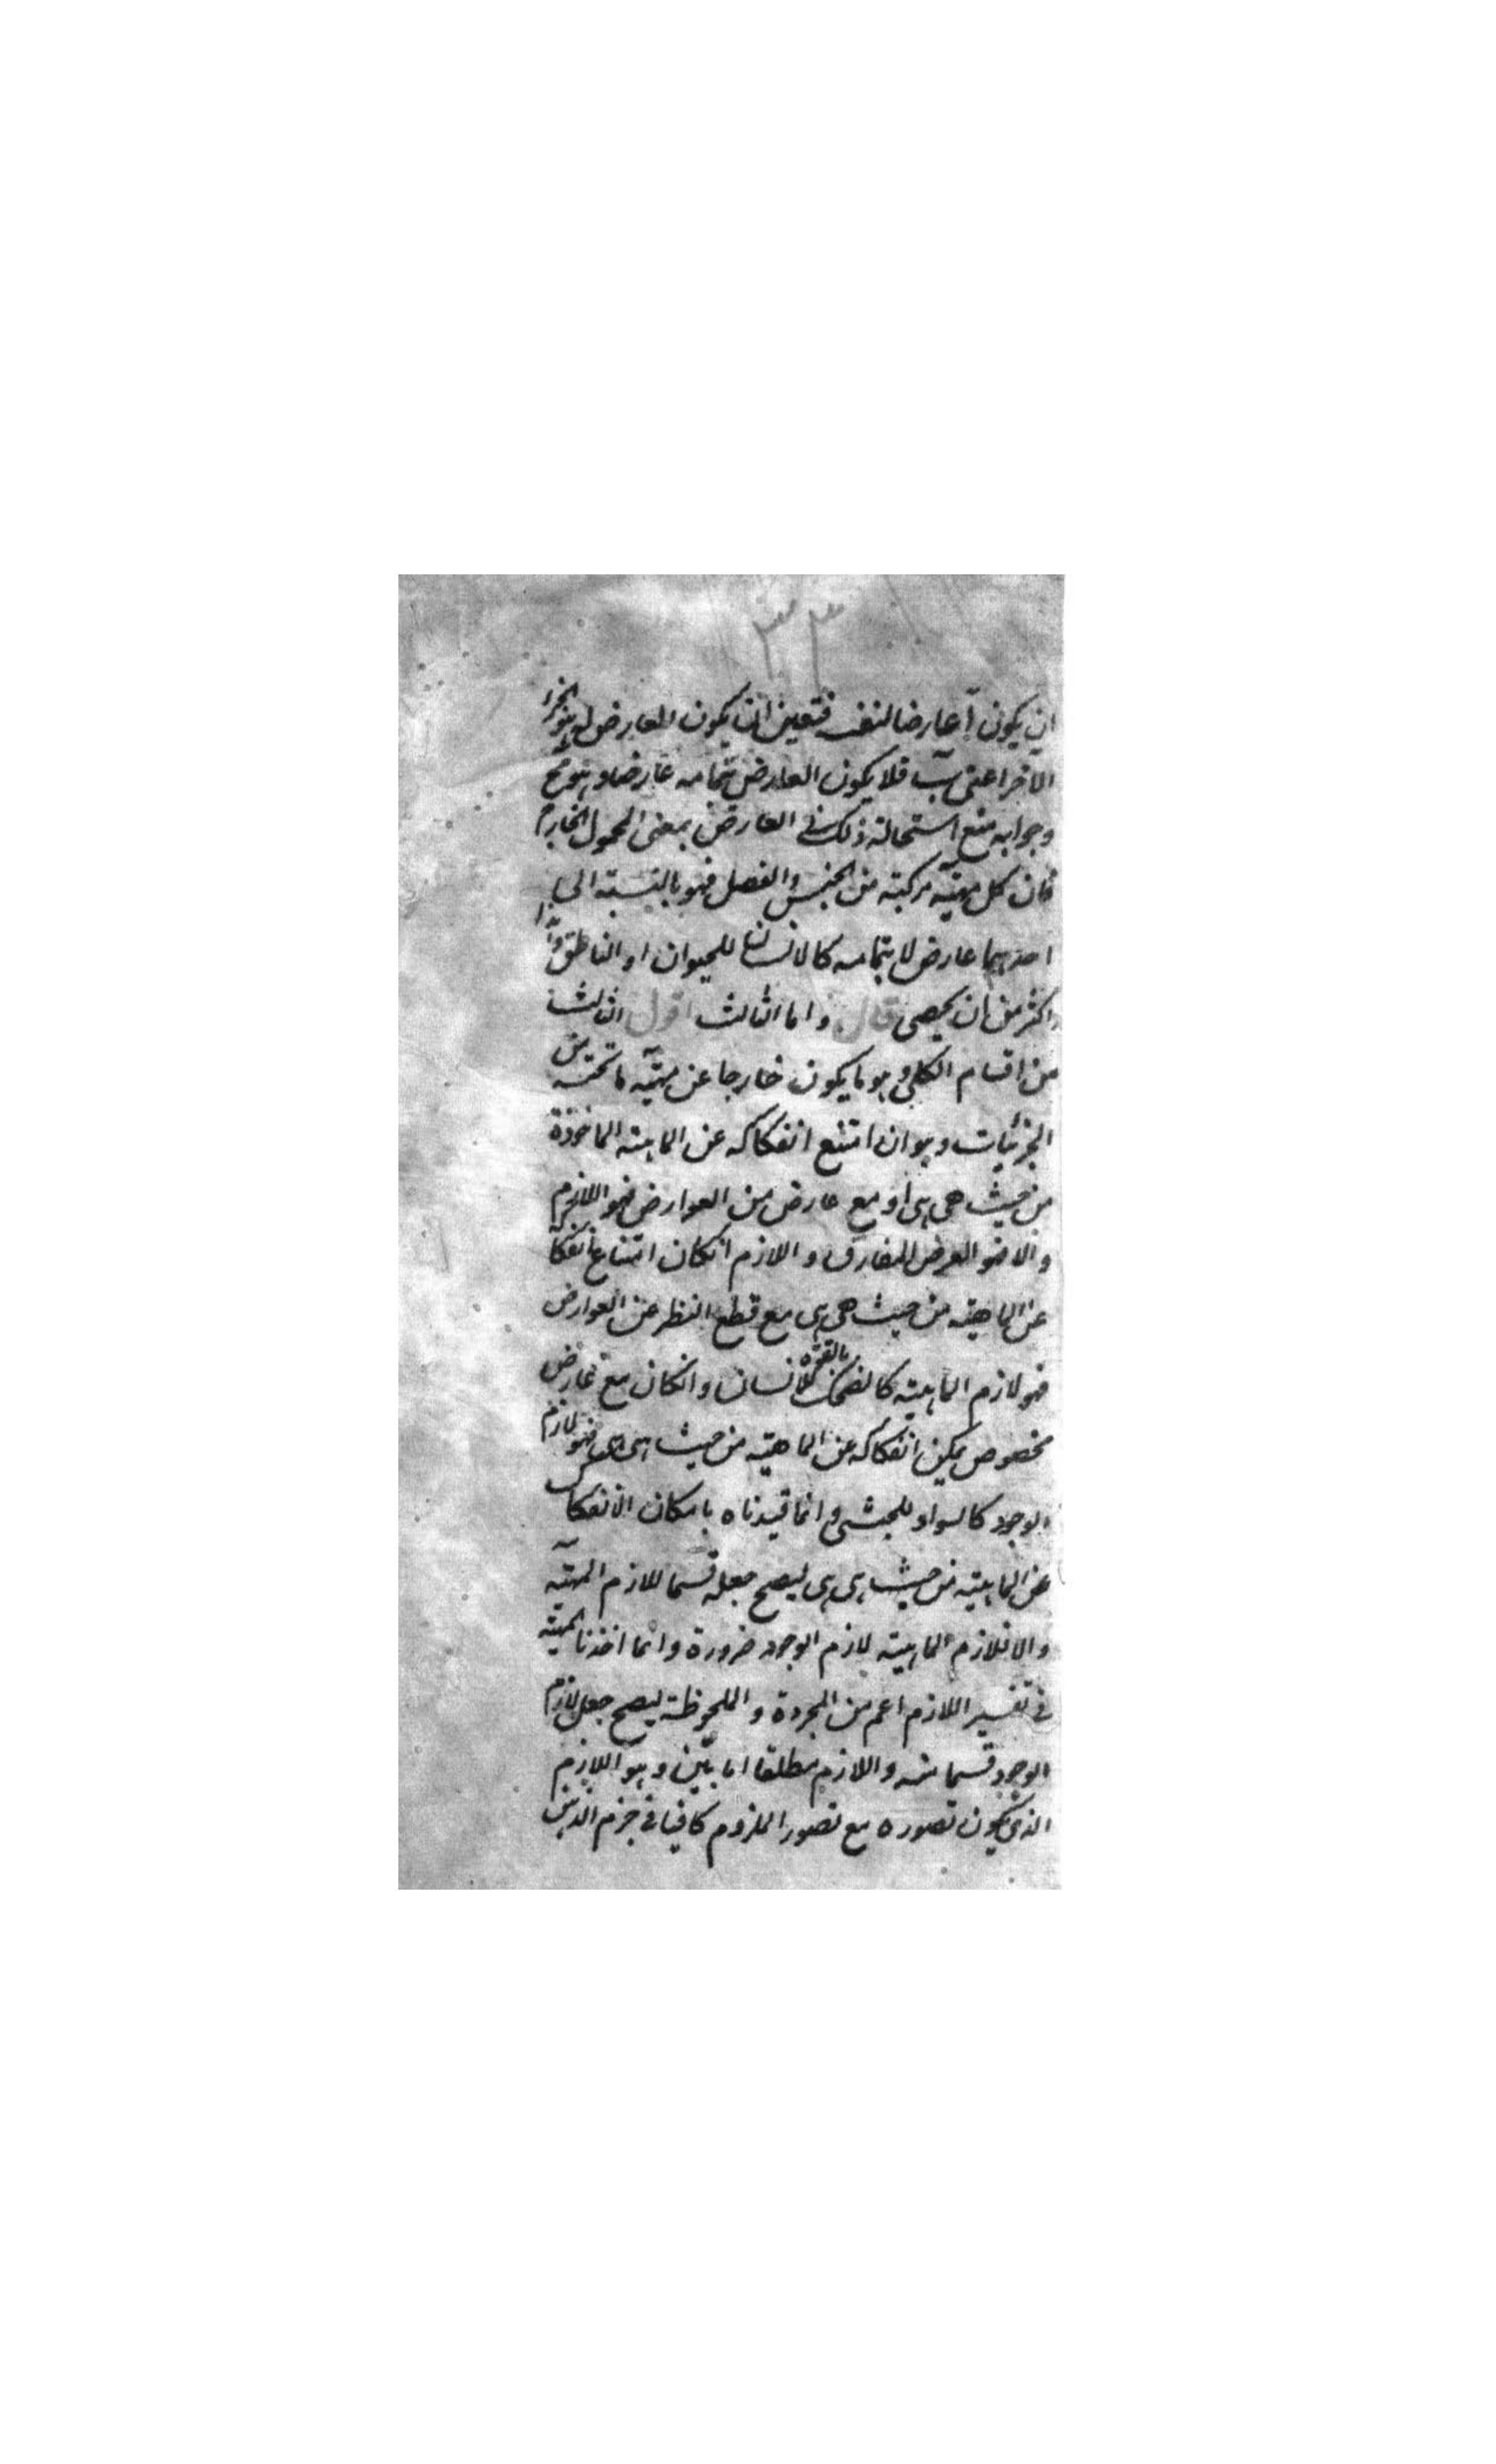 ٣٣
ان يكون آ عارضا لنفسه فتعين ان يكون العارض له هو الجزء
الآخر اعنى بۤ فلا يكون العارض بتمامه عارضا وهو مح
وجوابه منع استحالة ذلك فى العارض بمعنى المحمول الخارج
فان كل مهيّة مركبة من الجنس والفصل فهو بالنسبة الى
احدهما عارض لا بتمامه كالانسان للحيوان او الناطق وانه
اكثر من ان يحصى قال واما الثالث اقول الثالث
من اقسام الكلى وهو ما يكون خارجا عن مهيّة ما تحته من
الجزئيات وهو ان امتنع انفكاكه عن الماهية الماخوذة
من حيث هى هى او مع عارض من العوارض فهو اللازم
والا فهو العرض المفارق واللازم انكان امتناع انفكاكه
عن الماهية من حيث هى هى مع قطع النظر عن العوارض
فهو لازم الماهية كالضحك بالقوة للانسان وانكان مع عارض
مخصوص يمكن انفكاكه عن الماهية من حيث هى هى فهو لازم
الوجود كالسواد للحبشى وانما قيدناه بامكان الانفكاك
عن الماهية من حيث هى هى ليصح جعله قسما للازم المهيّة
والا فلازم الماهية لازم الوجود ضرورة وانما اخذنا المهية
فى تفسير اللازم اعم من المجردة والملحوظة ليصح جعل لازم
الوجود قسما منه واللازم مطلقا اما بيّن وهو اللازم
الذى يكون تصوره مع تصور الملزوم كافيا فى جزم الذهن